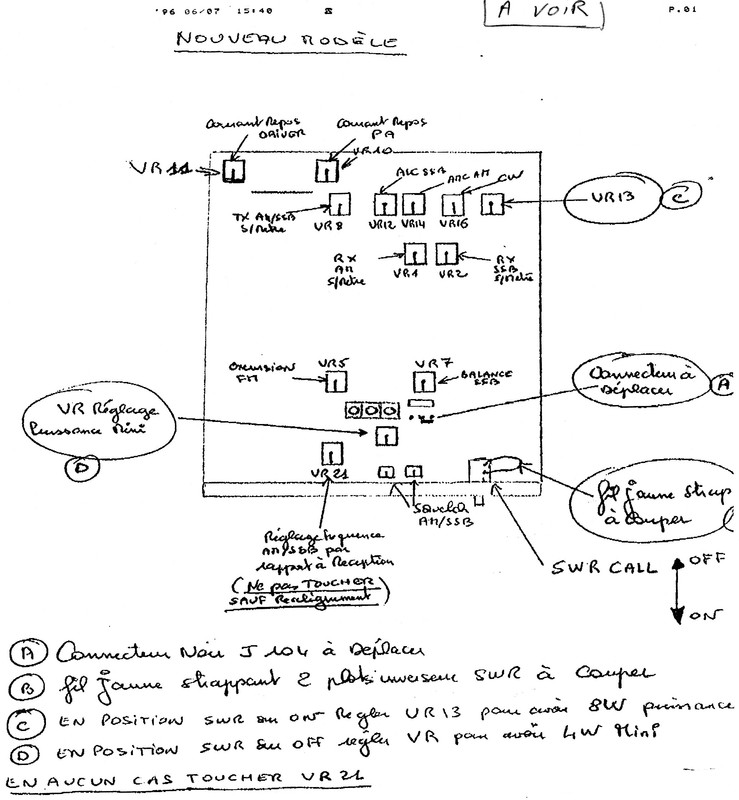 '96 06/07 15:40
P.01
A VOIR
NOUVEAU MODÈLE
Courant Repos
DRIVER
Courant Repos
PA
VR10
VR11
ALC SSB
AMC AM
CW
VR13
C
TX AM/SSB
S/Metre
VR8
VR12
VR14
VR16
RX
AM
S/Metre
VR1
VR2
RX
SSB
S/Metre
Excursion
FM
VR5
VR7
BALANCE
SSB
Connecteur à
Déplacer
A
VR Réglage
Puissance Mini
D
VR21
Squelch
AM/SSB
fil jaune strap
à couper
Réglage frequence
AM/SSB par
rapport à Reception
(Ne pas TOUCHER
SAUF Realignement)
SWR CALL
OFF
ON
A Connecteur Noir J104 à Déplacer
B fil jaune strappant 2 plots inverseur SWR à couper
C EN POSITION SWR sur ON Regler VR13 pour avoir 8W puissance
D EN POSITION SWR sur OFF régler VR pour avoir 4W Mini
EN AUCUN CAS TOUCHER VR21